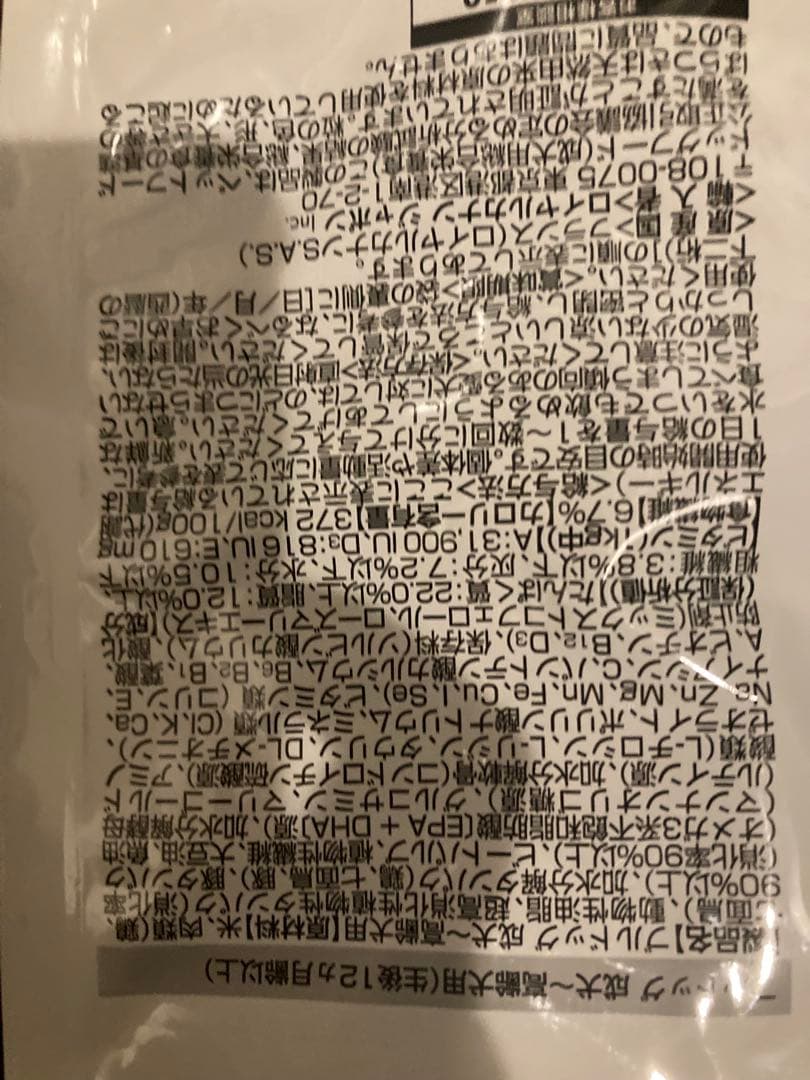 ドッグ 成犬〜高齢犬用(生後12ヵ月齢以上)
製品名】ブルドッグ 成犬〜高齢犬用【原材料】米、肉類(鶏、
七面鳥)、動物性油脂、超高消化性植物性タンパク(消化率
90%以上)、加水分解タンパク(鶏、七面鳥、豚)、豚タンパク
(消化率90%以上)、ビートパルプ、植物性繊維、大豆油、魚油
(オメガ3系不飽和脂肪酸[EPA+DHA]源)、加水分解酵母
(マンナンオリゴ糖源)、グルコサミン、マリーゴールド
(ルテイン源)、加水分解軟骨(コンドロイチン硫酸源)、アミノ
酸類(L-チロシン、L-リジン、タウリン、DL-メチオニン)、
ゼオライト、ポリリン酸ナトリウム、ミネラル類(Cl、K、Ca、
Na、Zn、Mg、Mn、Fe、Cu、I、Se)、ビタミン類(コリン、E、
ナイアシン、C、パントテン酸カルシウム、B6、B2、B1、葉酸、
A、ビオチン、B12、D3)、保存料(ソルビン酸カリウム)、酸化
防止剤(ミックストコフェロール、ローズマリーエキス)【成分
(保証分析値)】たんぱく質:22.0%以上、脂質:12.0%以上、
粗繊維:3.8%以下、灰分:7.2%以下、水分:10.5%以下
ビタミン(1kg中)】A:31,900 IU、D3:816 IU、E:610 mg
【食物繊維】6.7%【カロリー含有量】372 kcal/100g(代謝
エネルギー)<給与方法>ここに表示されている給与量は
使用開始時の目安です。個体差や活動量に応じて表を参考に、
1日の給与量を1〜数回に分けて与えてください。新鮮な
水をいつでも飲めるようにしてあげてください。急いで
食べてしまう傾向のある愛犬に対しては、のどにつまらせない
ように注意してください。<保存方法>直射日光の当たらない、
湿気の少ない涼しいところで保管してください。開封後は
しっかりと密閉し、給与方法を参考に、なるべくお早めにご
使用ください。<賞味期限>袋の裏側に[日/月/年(西暦の
下二桁)]の順に表示してあります。
<原産国>フランス(ロイヤルカナンS.A.S.)
<輸入者>ロイヤルカナン ジャポン Inc.
〒108-0075 東京都港区港南1-2-70
ドッグフード(成犬用総合栄養食)この製品は、ペットフード
公正取引協議会の定める分析試験の結果、総合栄養食の基準
を満たすことが証明されています。粒の色、形、大きさ等の
ばらつきは天然由来の原材料を使用しているために起こる
もので、品質に問題はありません。